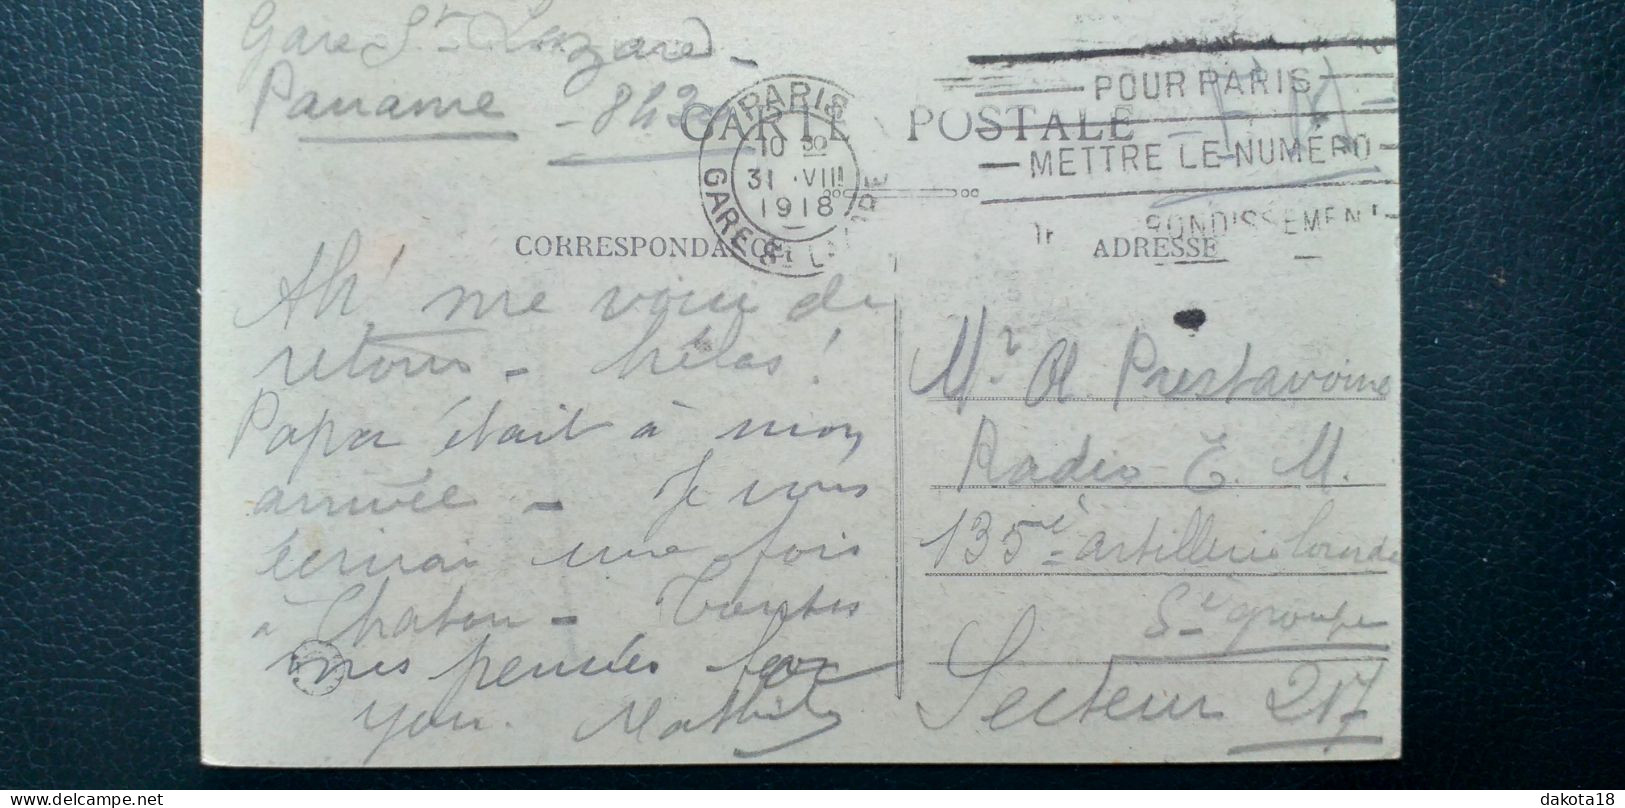 Gare St Lazare -
Paname - 8h30
CARTE POSTALE
F M
PARIS
GARE ST LAZARE
10 30
31 . VIII
1918
POUR PARIS
METTRE LE NUMÉRO
RONDISSEMENT
CORRESPONDANCE
ADRESSE
Ah! me voici de
retour - hélas!
Papa était à mon
arrivée - Je vous
écrirai une fois
à Chatou - Toutes
mes pensées for
you. Mathilde
Mr. A. Prestavoine
Radio E. M.
135è artillerie lourde
5è groupe
Secteur 217
dakota18